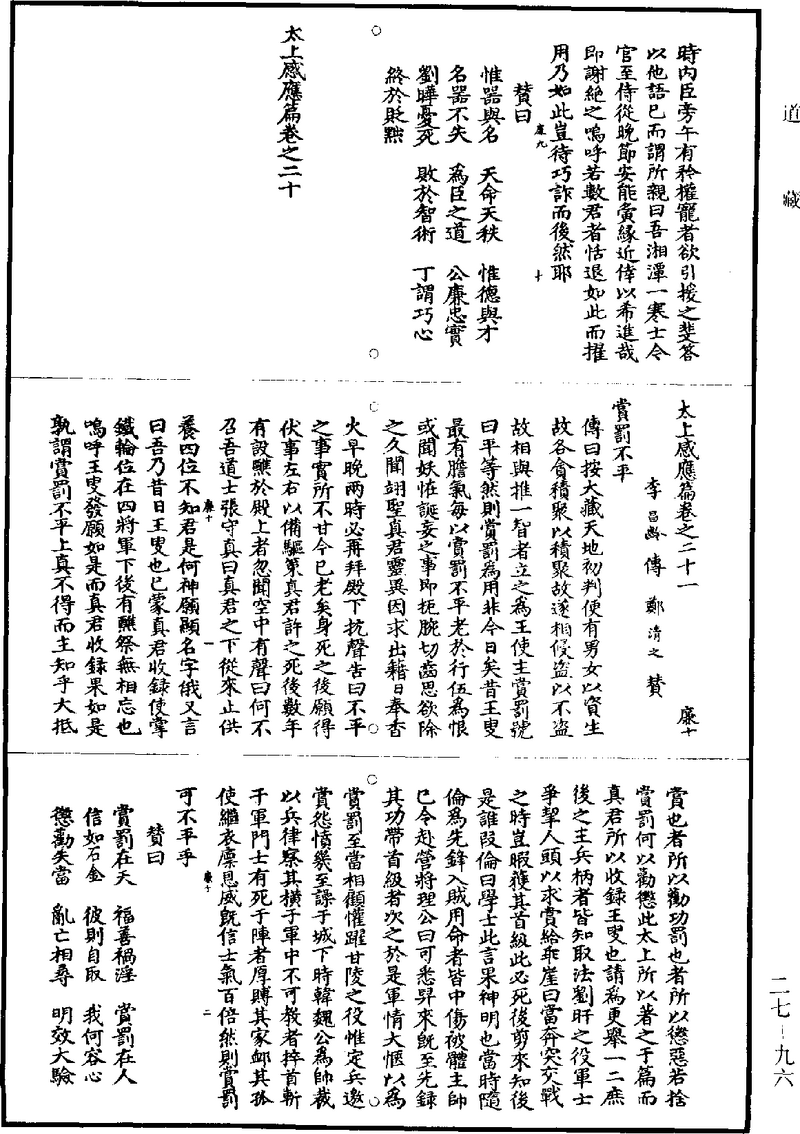 道藏
時內臣旁午有矜權寵者欲引援之斐答
以他語已而謂所親曰吾湘潭一寒士令
官至侍從晚節安能夤緣近倖以希進哉
即謝絕之嗚呼若數君者恬退如此而擢
用乃如此豈待巧詐而後然耶
廉九 十
贊曰
惟器與名 天命天秩 惟德與才
名器不失 為臣之道 公廉忠實
劉曄憂死 敗於智術 丁謂巧心
終於貶黜
太上感應篇卷之二十
太上感應篇卷之二十一 廉十
李昌齡傳 鄭清之贊
賞罰不平
傳曰按大藏天地初判便有男女以資生
故各貪積聚以積聚故遂相侵盜以不盜
故相與推一智者立之為王使主賞罰號
曰平等然則賞罰為用非今日矣昔王叟
最有膽氣每以賞罰不平老於行伍為恨
或聞妖怪誕妄之事即扼腕切齒思欲除
之久聞翊聖真君靈異因求出籍日奉香
火早晚兩時必再拜殿下抗聲告曰不平
之事實所不甘今已老矣身死之後願得
伏事左右以備驅策真君許之死後數年
有設醮於殿上者忽聞空中有聲曰何不
召吾道士張守真曰真君之下從來止供
廉十 一
養四位不知君是何神願顯名字俄又言
曰吾乃昔日王叟也已蒙真君收錄使掌
鐵輪位在四將軍下後有醮祭無相忘也
嗚呼王叟發願如是而真君收錄果如是
孰謂賞罰不平上真不得而主知乎大抵
賞也者所以勸功罰也者所以懲惡若捨
賞罰何以勸懲此太上所以著之于篇而
真君所以收錄王叟也請為更舉一二庶
後之主兵柄者皆知取法劉旰之役軍士
爭挈人頭以求賞給乖崖曰當奔突交戰
之時豈暇獲其首級此必死後剪來知後
是誰段倫曰學士此言果神明也當時隨
倫為先鋒入賊用命者皆中傷被體主帥
已令赴營將理公曰可悉舁來既至先錄
其功帶首級者次之於是軍情大愜以為
賞罰至當相顧懽躍甘陵之役惟定兵邀
賞怨憤幾至譟于城下時韓魏公為帥裁
以兵律察其橫于軍中不可教者捽首斬
于軍門士有死于陣者厚賻其家卹其孤
使繼衣廩恩威既信士氣百倍然則賞罰
廉十 二
可不平乎
贊曰
賞罰在天 福善禍淫 賞罰在人
信如石金 彼則自取 我何容心
懲勸失當 亂亡相尋 明效大驗
二七-九六